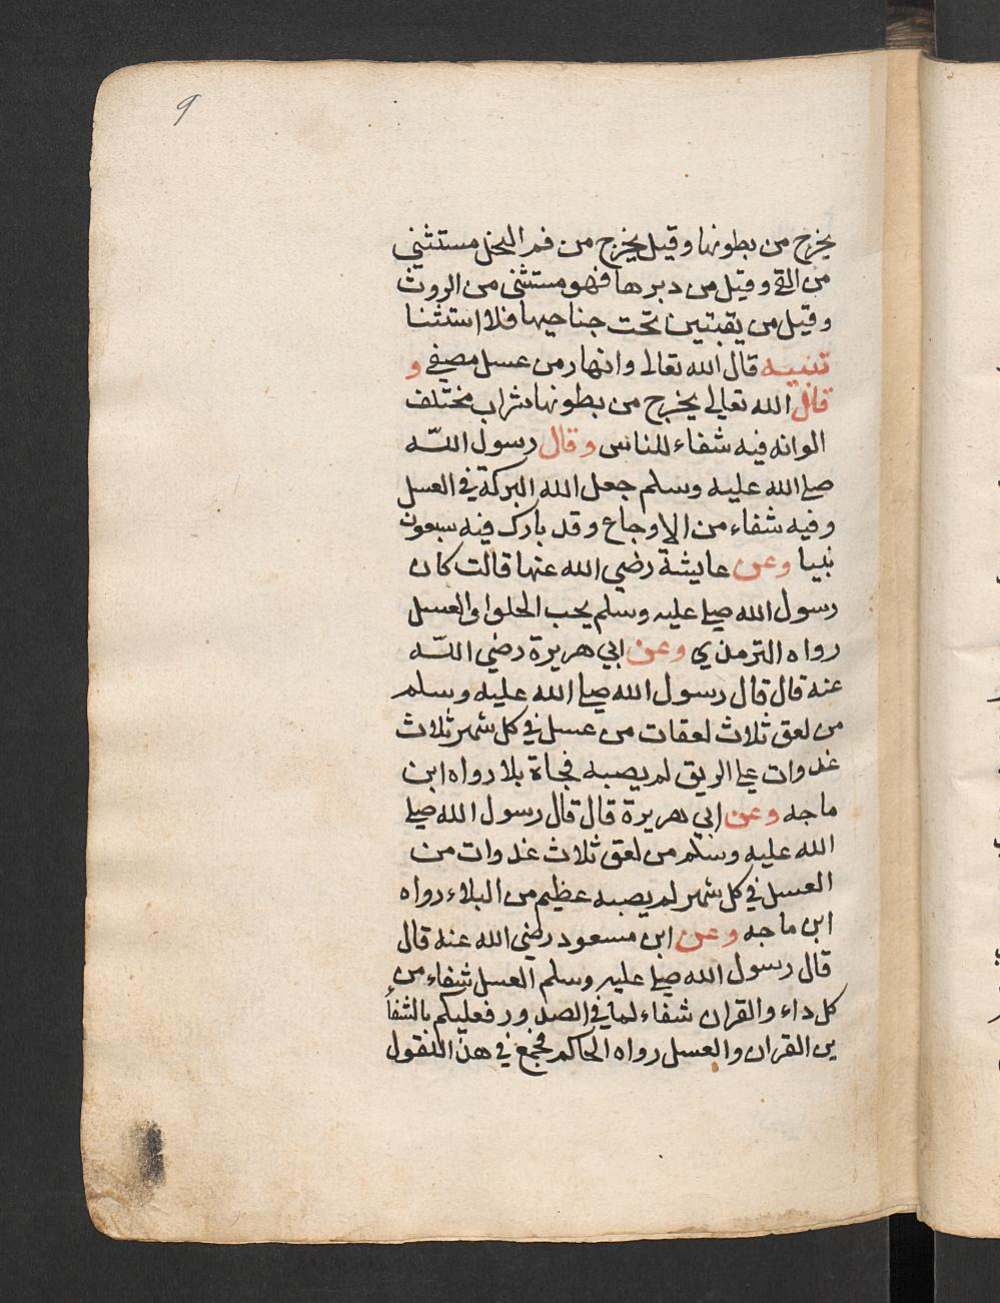 9
يخرج من بطونها وقيل يخرج من فم النحل مستثنى
من القي وقيل من دبرها فهو مستثنى من الروث
وقيل من ثقبتين تحت جناحيها فلا استثنا
تنبيه قال الله تعالى وانهار من عسل مصفى و
قال الله تعالى يخرج من بطونها شراب مختلف
الوانه فيه شفاء للناس وقال رسول الله
صلى الله عليه وسلم جعل الله البركة في العسل
وفيه شفاء من الاوجاع وقد بارك فيه سبعون
نبيا وعن عايشة رضي الله عنها قالت كان
رسول الله صلى عليه وسلم يحب الحلوا والعسل
رواه الترمذي وعن ابي هريرة رضي الله
عنه قال قال رسول الله صلى الله عليه وسلم
من لعق ثلاث لعقات من عسل في كل شهر ثلاث
غدوات على الريق لم يصبه فجاة بلا رواه ابن
ماجه وعن ابي هريرة قال قال رسول الله صلى
الله عليه وسلم من لعق ثلاث غدوات من
العسل في كل شهر لم يصبه عظيم من البلاء رواه
ابن ماجه وعن ابن مسعود رضي الله عنه قال
قال رسول الله صلى عليه وسلم العسل شفاء من
كل داء والقران شفاء لما في الصدور فعليكم بالشفا
ين القران والعسل رواه الحاكم فجمع في هذا النقول